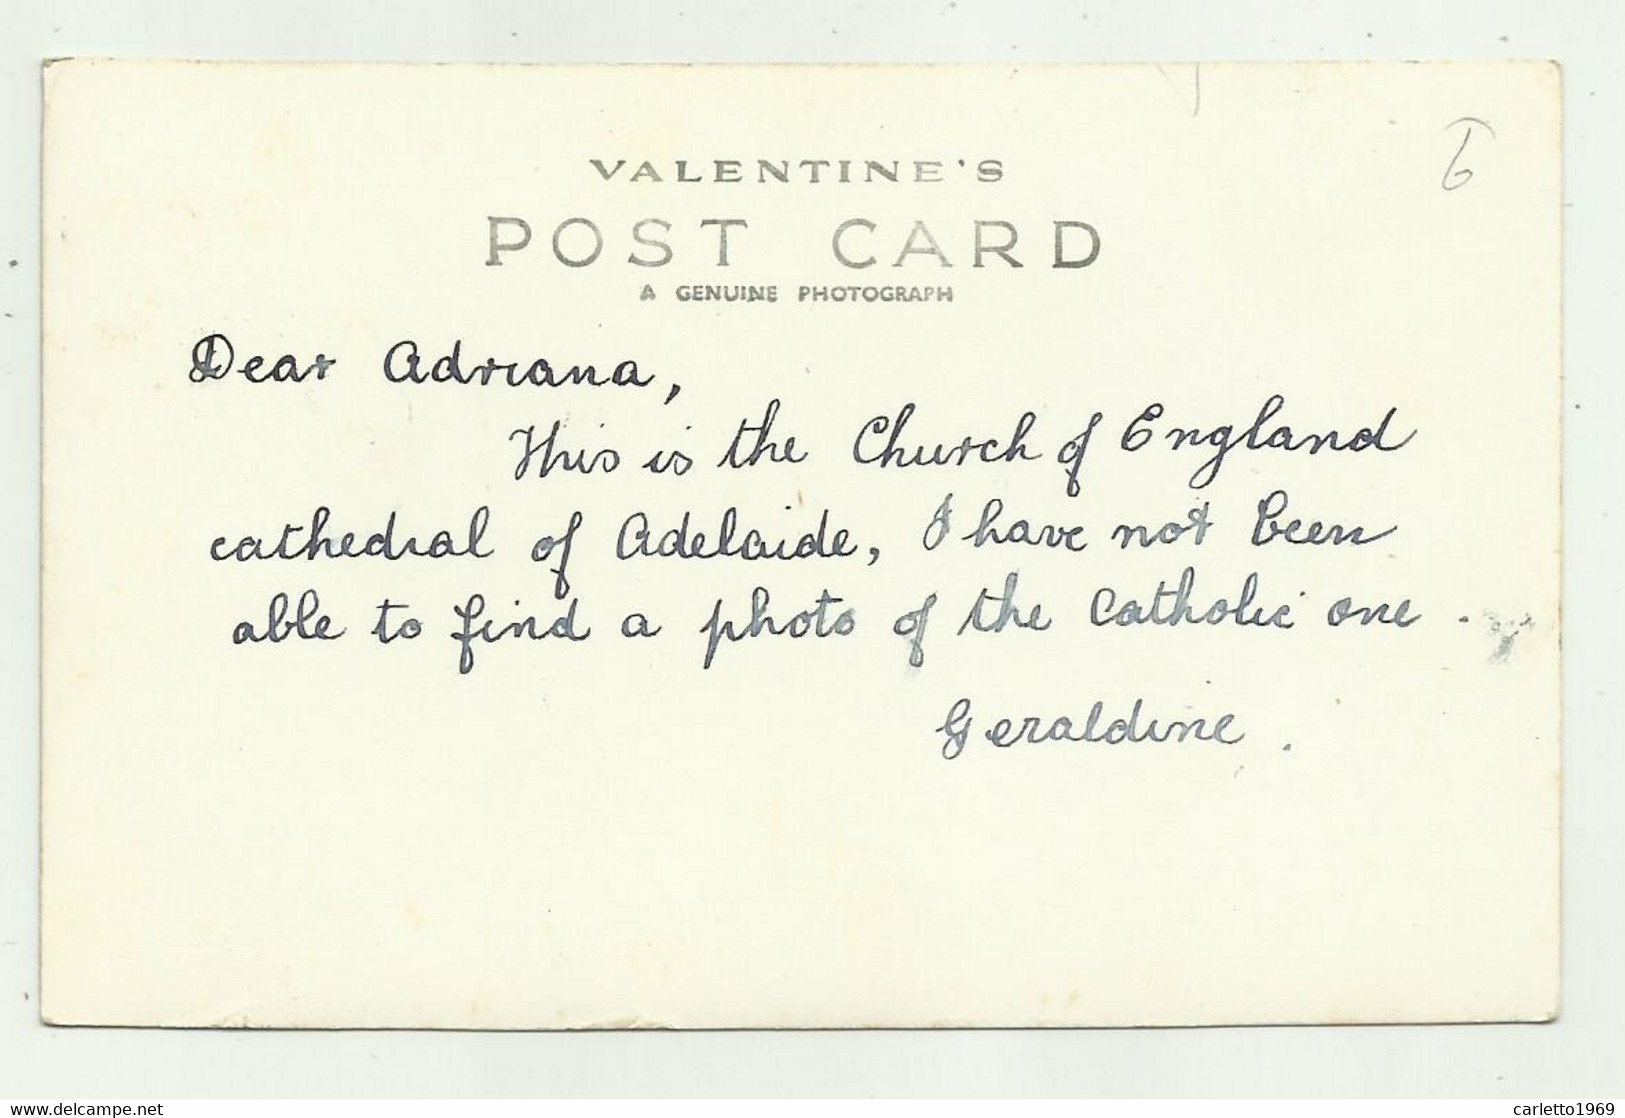 VALENTINE'S
POST CARD
A GENUINE PHOTOGRAPH
6
Dear Adriana,
This is the Church of England
cathedral of Adelaide, I have not been
able to find a photo of the Catholic one.
Geraldine.
delcampe.net
carletto1969